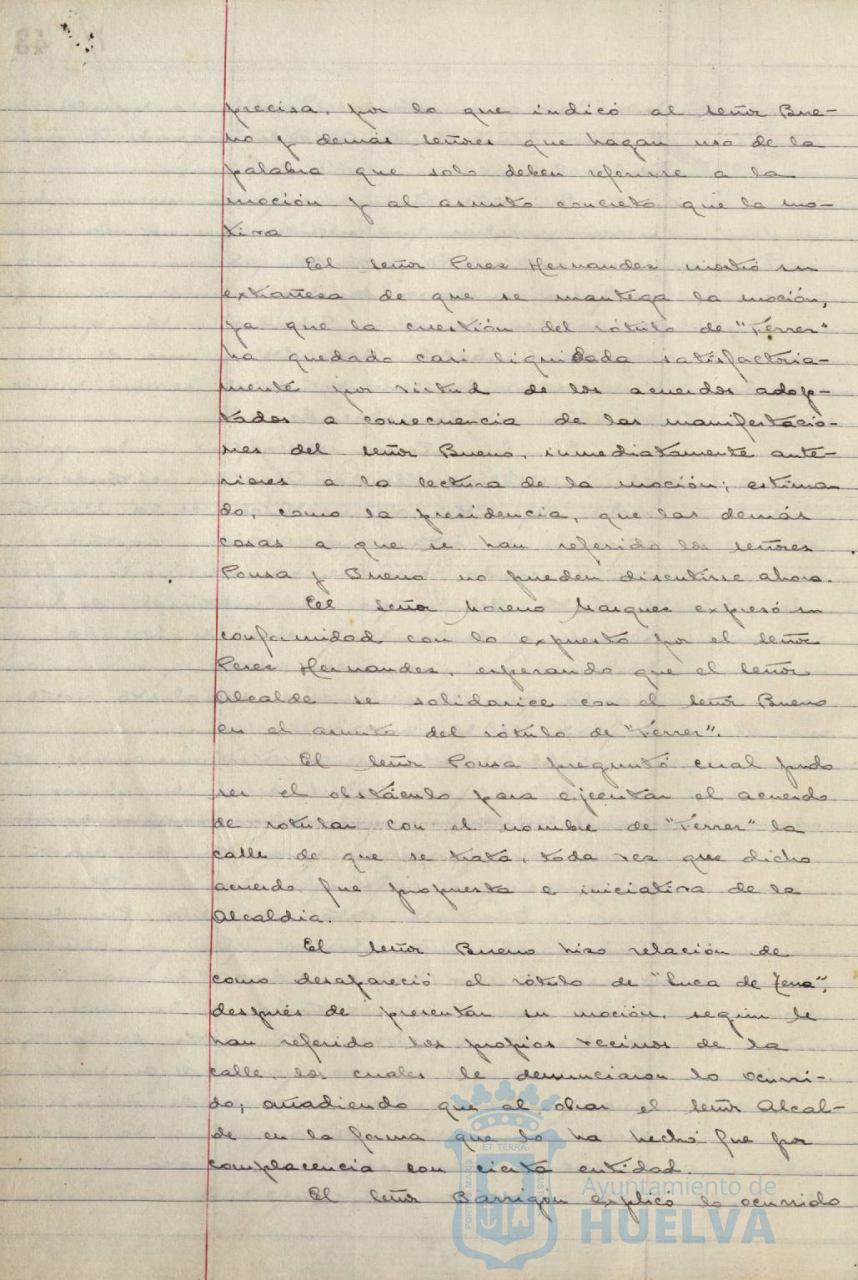 precisa, por lo que indicó al señor Bue-
no y demás señores que hagan uso de la
palabra que solo deben referirse a la
moción y al asunto concreto que la mo-
tiva
El señor Perez Hernandez mostró su
extrañesa de que se mantega la moción,
ya que la cuestión del rótulo de "Ferrer"
ha quedado casi liquidada satisfactoria-
mente por virtud de los acuerdos adop-
tados a consecuencia de las manifestacio-
nes del señor Bueno, inmediatamente ante-
riores a la lectura de la moción; estiman
do, como la presidencia, que las demás
cosas a que se han referido los señores
Ponsa y Bueno no pueden discutirse ahora.
El señor Moreno Marquez expresó su
conformidad con lo expuesto por el señor
Perez Hernandez, esperando que el señor
Alcalde se solidarice con el señor Bueno
en el asunto del rótulo de "Ferrer".
El señor Ponsa preguntó cual pudo
ser el obstáculo para ejecutar el acuerdo
de rotular con el nombre de "Ferrer" la
calle de que se trata, toda vez que dicho
acuerdo fue propuesta e iniciativa de la
Alcaldia.
El señor Bueno hizo relación de
como desapareció el rótulo de "Luca de Tena",
después de presentar su moción, segun le
han referido los propios vecinos de la
calle, los cuales le denunciaron lo ocurri-
do; añadiendo que al obrar el señor Alcal-
de en la forma que lo ha hecho fue por
complacencia con cierta entidad.
El señor Barrigón explicó lo ocurrido
Ayuntamiento de
HUELVA